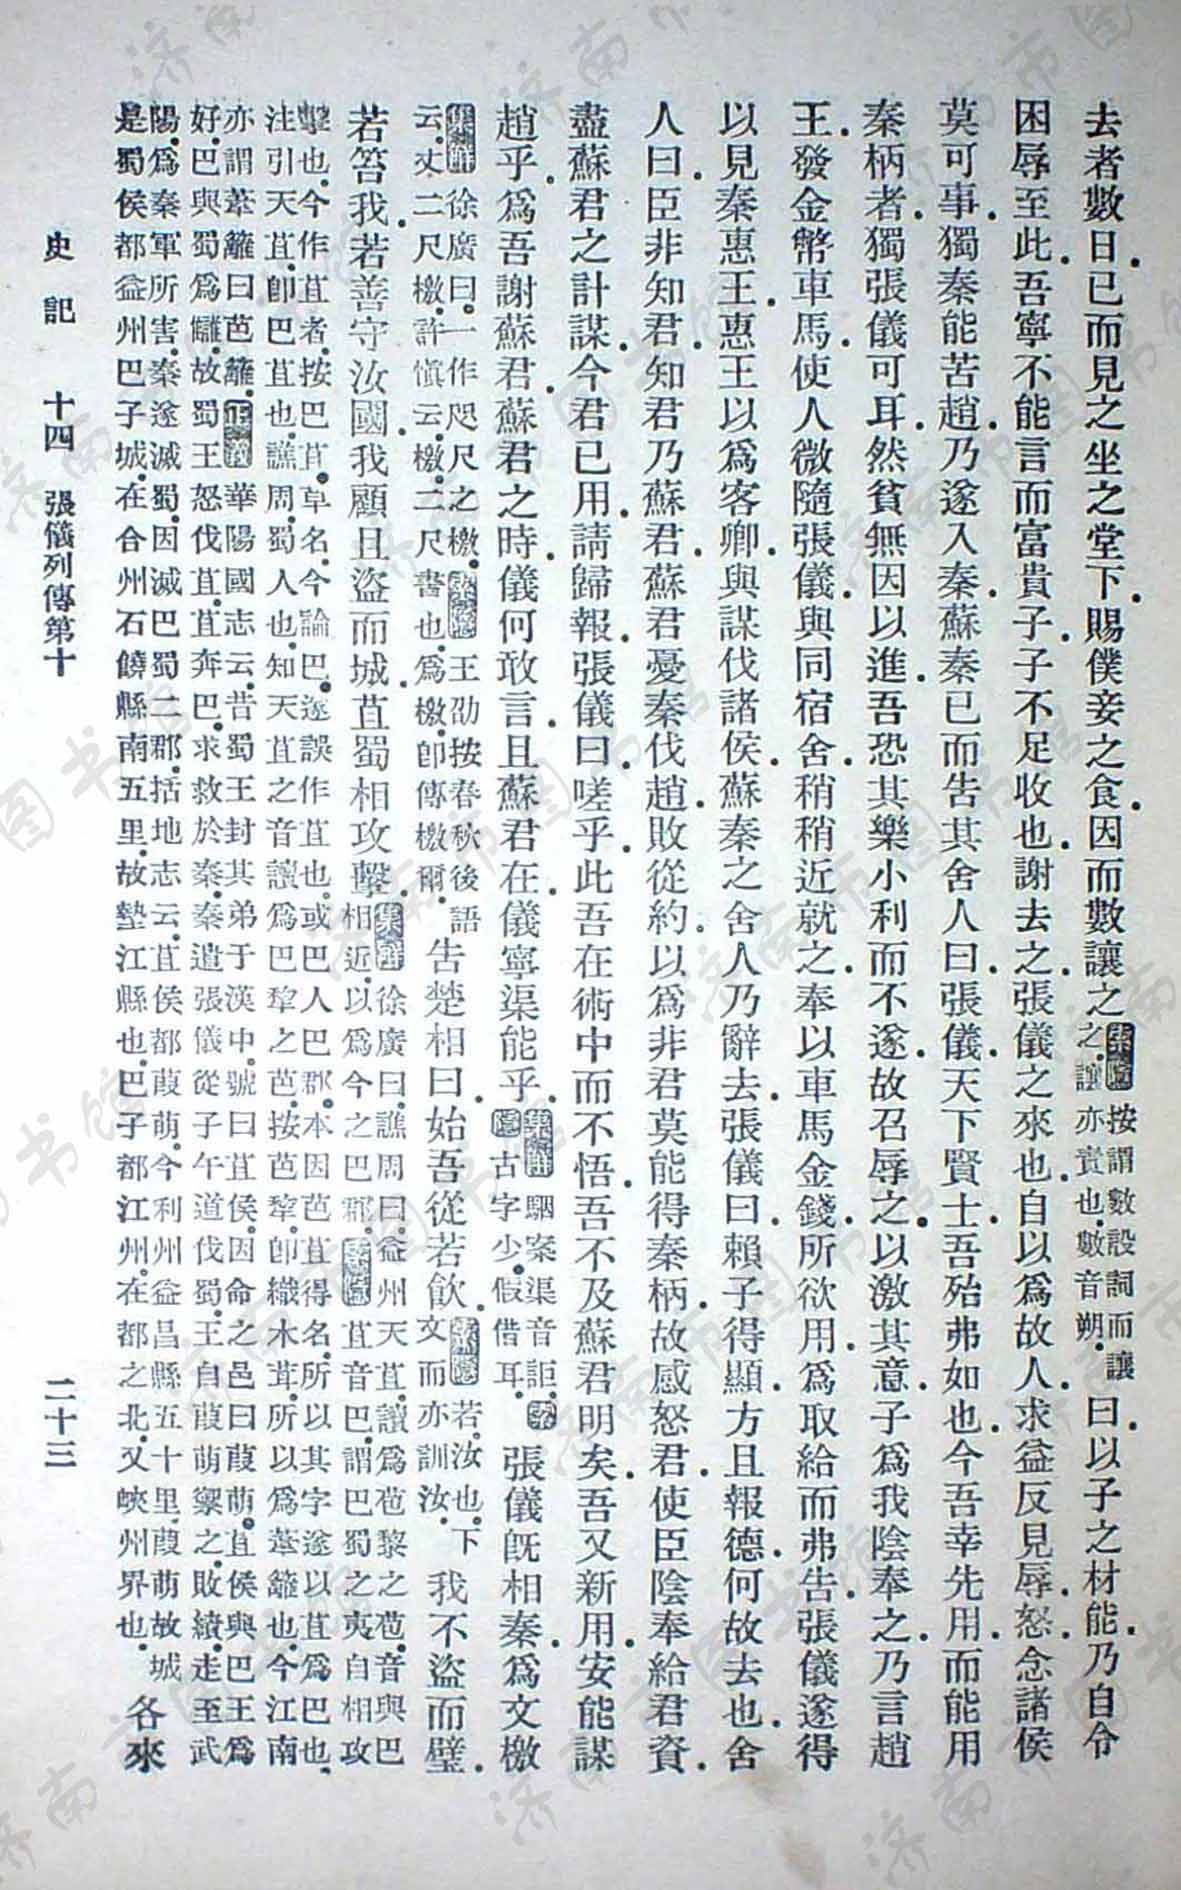 去者數日.已而見之.坐之堂下.賜僕妾之食.因而數讓之.索隱按謂數設詞而讓之.讓亦責也.數音朔.曰.以子之材能.乃自令
困辱至此.吾寧不能言而富貴子.子不足收也.謝去之.張儀之來也.自以爲故人.求益反見辱.怒.念諸侯
莫可事.獨秦能苦趙.乃遂入秦.蘇秦已而告其舍人曰.張儀.天下賢士.吾殆弗如也.今吾幸先用.而能用
秦柄者.獨張儀可耳.然貧無因以進.吾恐其樂小利而不遂.故召辱之.以激其意.子爲我陰奉之.乃言趙
王.發金幣車馬.使人微隨張儀.與同宿舍.稍稍近就之.奉以車馬金錢.所欲用.爲取給而弗告.張儀遂得
以見秦惠王.惠王以爲客卿.與謀伐諸侯.蘇秦之舍人乃辭去.張儀曰.賴子得顯.方且報德.何故去也.舍
人曰.臣非知君.知君乃蘇君.蘇君憂秦伐趙.敗從約.以爲非君莫能得秦柄.故感怒君.使臣陰奉給君資.
盡蘇君之計謀.今君已用.請歸報.張儀曰.嗟乎.此吾在術中而不悟.吾不及蘇君明矣.吾又新用.安能謀
趙乎.爲吾謝蘇君.蘇君之時.儀何敢言.且蘇君在.儀寧渠能乎.集解駰案渠音詎.索隱古字少.假借耳.張儀既相秦.爲文檄
集解徐廣曰.一作咫尺之檄.索隱王劭按春秋後語云.丈二尺檄.許慎云.檄.二尺書也.爲檄.卽傳檄爾.告楚相曰.始吾從若飲.索隱若.汝也.下文而亦訓汝.我不盜而璧.
若笞我.若善守汝國.我顧且盜而城.苴蜀相攻擊.集解徐廣曰.譙周曰.益州天苴.讀爲苞黎之苞.音與巴相近.以爲今之巴郡.索隱苴音巴.謂巴蜀之夷自相攻
擊也.今作苴者.按巴苴.草名.今論巴.遂誤作苴也.或巴人巴郡.本因芭苴得名.所以其字遂以苴爲巴也.
注引天苴.卽巴苴也.譙周.蜀人也.知天苴之音讀爲巴犂之芭.按芭犂.卽織木葺.所以爲葦籬也.今江南
亦謂葦籬曰芭籬.正義華陽國志云.昔蜀王封其弟于漢中.號曰苴侯.因命之邑曰葭萌.苴侯與巴王爲
好.巴與蜀爲讎.故蜀王怒伐苴.苴奔巴.求救於秦.秦遣張儀從子午道伐蜀.王自葭萌禦之.敗績.走至武
陽.爲秦軍所害.秦遂滅蜀.因滅巴蜀二郡.括地志云.苴侯都葭萌.今利州益昌縣五十里.葭萌故城
是.蜀侯都益州巴子城.在合州石饒縣南五里.故墊江縣也.巴子都江州.在都之北.又峽州界也.各來
史記 十四 張儀列傳第十 二十三